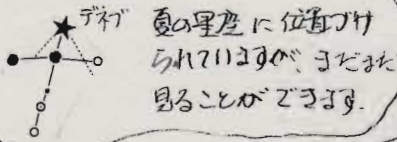 デネブ
夏の星座に位置づけ
られていますが、まだまだ
見ることができます.